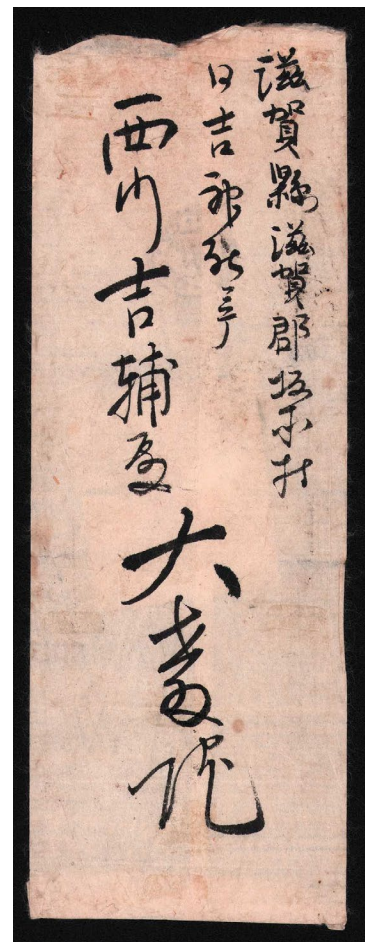 滋賀縣滋賀郡坂本村
日吉神社宮
西川吉輔殿
大教院